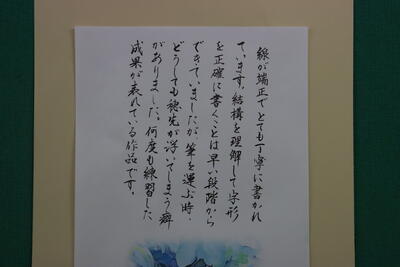 線が端正でとても丁寧に書かれ
ています。結構を理解して字形
を正確に書くことは早い段階から
できていましたが、筆を運ぶ時、
どうしても穂先が浮いてしまう癖
がありました。何度も練習した
成果が表れている作品です。